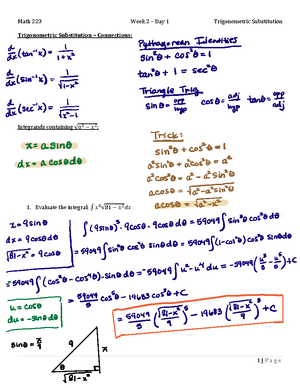 Math 223 Week 2 – Day 1 Trigonometric Substitution
Trigonometric Substitution – Connections:
Pythagorean Identities
d/dx (tan⁻¹x) = 1/(1+x²)
sin²θ + cos²θ = 1
tan²θ + 1 = sec²θ
d/dx (sin⁻¹x) = 1/√(1-x²)
Triangle Trig
sinθ = opp/hyp cosθ = adj/hyp tanθ = opp/adj
d/dx (sec⁻¹x) = 1/√(x²-1)
Integrands containing √(a² – x²):
Trick:
x = a sinθ
dx = a cosθ dθ
sin²θ + cos²θ = 1
a²sin²θ + a²cos²θ = a²
a²cos²θ = a² - a²sin²θ
a cosθ = √(a²-a²sin²θ)
a cosθ = √(a²-x²)
1. Evaluate the integral: ∫ x³√(81 – x²) dx
x = 9 sinθ
dx = 9 cosθ dθ
√(81-x²) = 9 cosθ
∫(9sinθ)³ · 9cosθ · 9cosθ dθ = 59049 ∫ sin³θ cos²θ dθ
= 59049 ∫ sin²θ cos²θ sinθ dθ = 59049 ∫ (1-cos²θ) cos²θ sinθ dθ
= 59049 ∫ (cos²θ - cos⁴θ) · sinθ dθ = -59049 ∫ u² - u⁴ du = -59049 (u³/3 - u⁵/5) + C
u = cosθ
du = -sinθ dθ
= 59049/5 cos⁵θ - 19683 cos³θ + C
= 59049/5 (√(81-x²)/9)⁵ - 19683 (√(81-x²)/9)³ + C
sinθ = x/9
9
x
θ
√(81-x²)
1 | P a g e